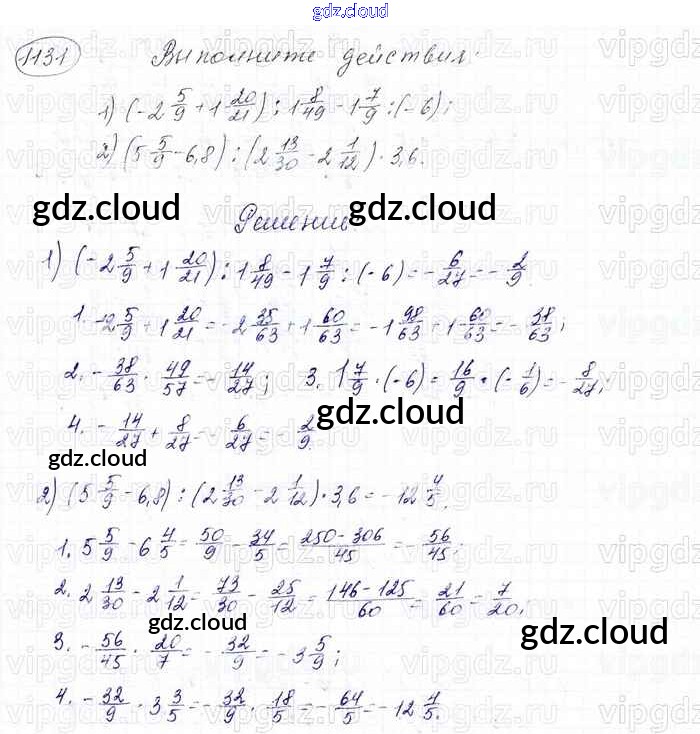 gdz.cloud
1131 Выполните действия:
1) (-2 5/9 + 1 20/21) : 1 8/49 - 1 7/9 : (-6);
2) (5 5/9 - 6,8) : (2 13/30 - 2 1/12) · 3,6.
gdz.cloud
gdz.cloud
Решение
1) (-2 5/9 + 1 20/21) : 1 8/49 - 1 7/9 : (-6) = - 6/27 = - 2/9.
1. -2 5/9 + 1 20/21 = -2 35/63 + 1 60/63 = -1 98/63 + 1 60/63 = - 38/63;
2. - 38/63 · 49/57 = - 14/27; 3. 1 7/9 · (-6) = 16/9 · (- 1/6) = - 8/27;
gdz.cloud
4. - 14/27 + 8/27 - 6/27 = - 2/9.
gdz.cloud
2) (5 5/9 - 6,8) : (2 13/30 - 2 1/12) · 3,6 = -12 4/5.
1. 5 5/9 - 6 4/5 = 50/9 - 34/5 = 250-306/45 = - 56/45;
2. 2 13/30 - 2 1/12 = 73/30 - 25/12 = 146-125/60 = 21/60 = 7/20;
3. - 56/45 · 20/7 = - 32/9 = -3 5/9;
gdz.cloud
4. - 32/9 · 3 3/5 = - 32/9 · 18/5 = - 64/5 = -12 4/5.